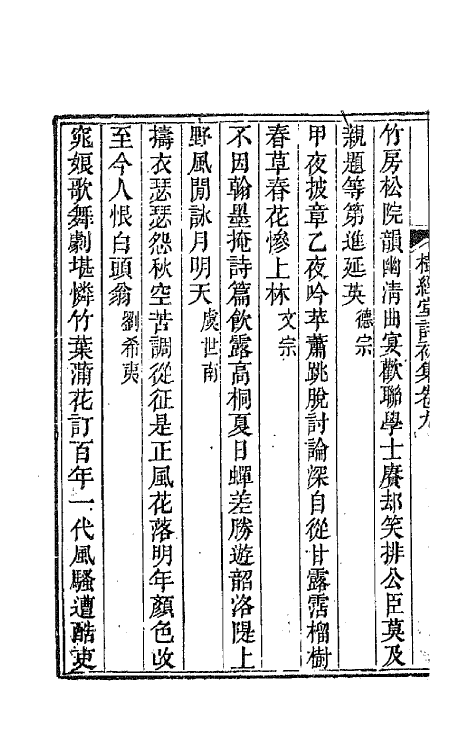 樹經堂詩初集卷九
竹房松院韻幽淸曲宴歡聯學士賡却笑排公臣莫及
親題等第進延英德宗
甲夜披章乙夜吟苹蕭跳脫討論深自從甘露霑榴樹
春草春花慘上林文宗
不因翰墨掩詩篇飲露高桐夏日蟬差勝遊韶洛隄上
野風閒詠月明天虞世南
擣衣瑟瑟怨秋空苦調從征是正風花落明年顏色改
至今人恨白頭翁劉希夷
窕娘歌舞劇堪憐竹葉蒲花訂百年一代風騷遭酷吏